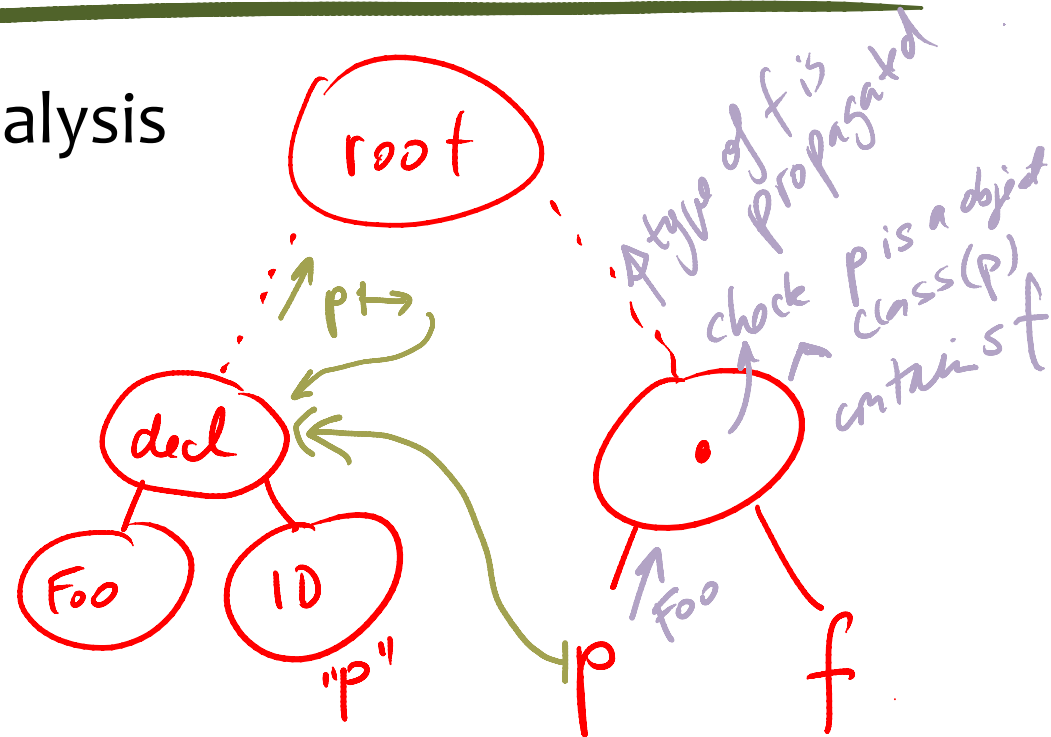 alysis
root
type of f is
propagated
check p is a object
class(p)
contains f
p ↦
decl
Foo
ID
"p"
Foo
p
f